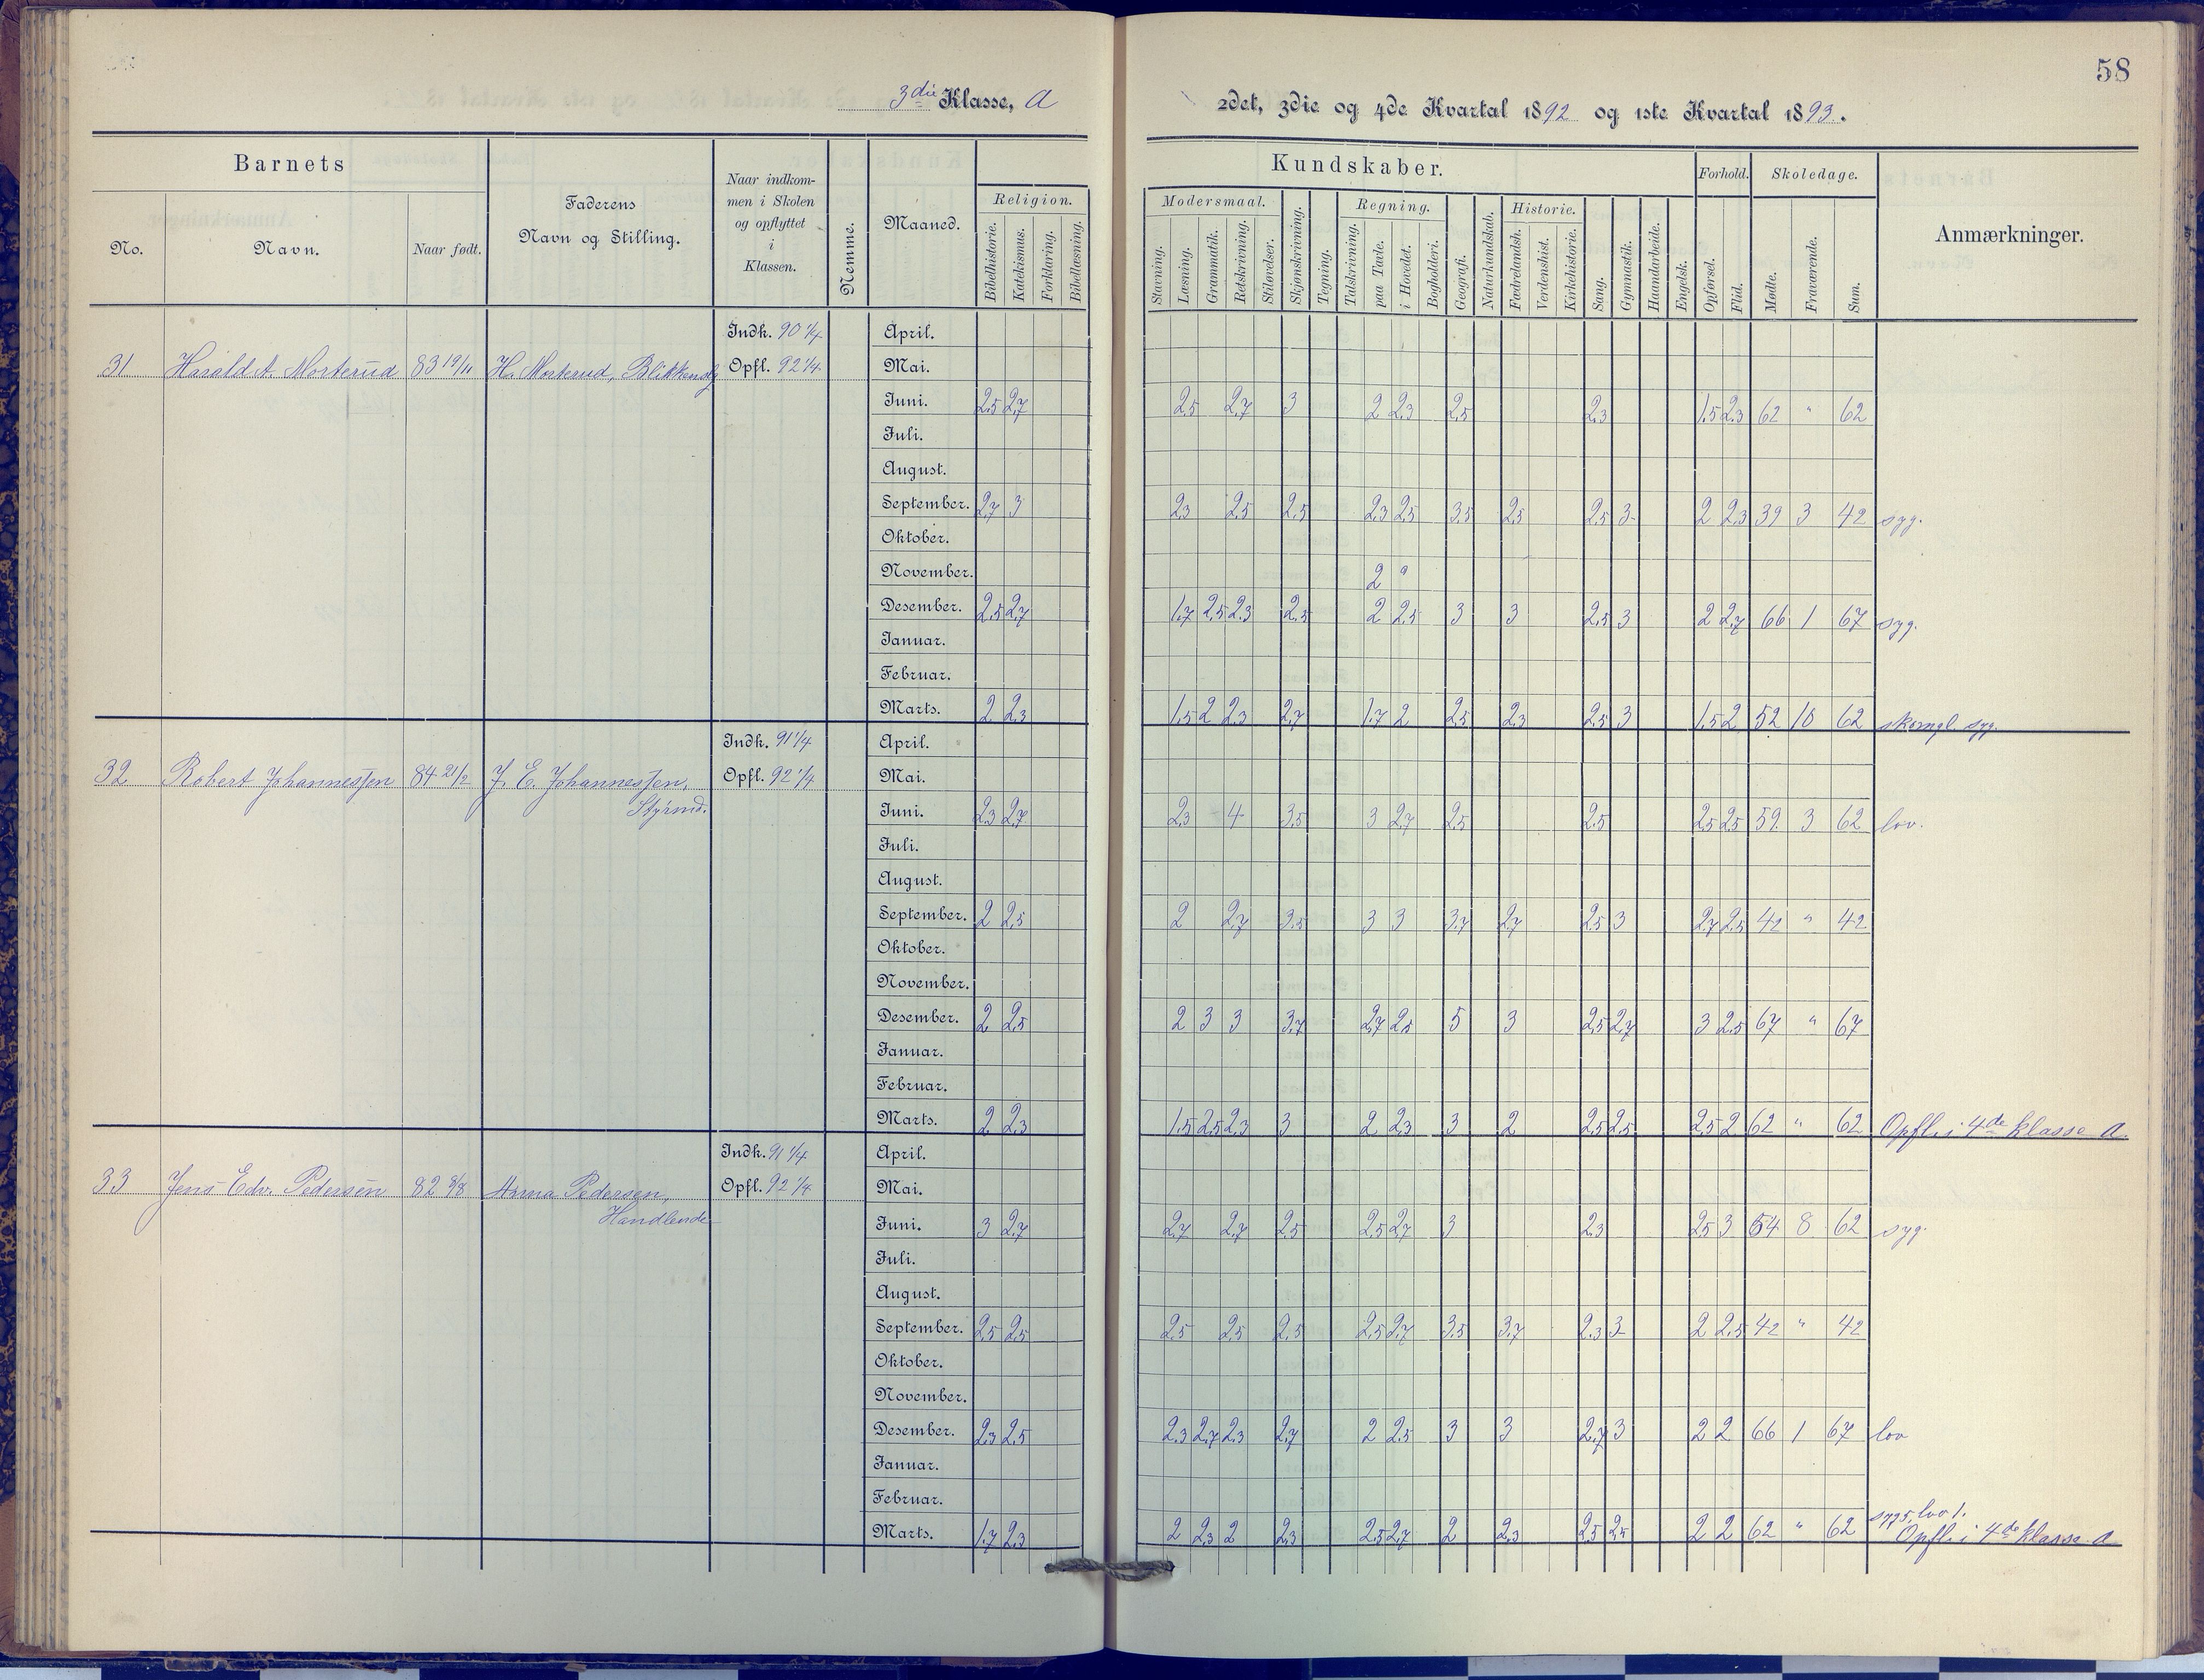 58
3die Klasse, A
2det, 3die og 4de Kvartal 1892 og 1ste Kvartal 1893.
Barnets
No.
Navn.
Naar født.
Faderens
Navn og Stilling.
Naar indkom-
men i Skolen
og opflyttet
i
Klassen.
Nemme.
Maaned.
Religion.
Bibelhistorie.
Katekismus.
Forklaring.
Bibellæsning.
Kundskaber.
Modersmaal.
Stavning.
Læsning.
Grammatik.
Retskrivning.
Stiløvelser.
Skjønskrivning.
Tegning.
Regning.
Talskrivning.
paa Tavle.
i Hovedet.
Bogholderi.
Geografi.
Naturkundskab.
Historie.
Fædrelandsh.
Verdenshist.
Kirkehistorie.
Sang.
Gymnastik.
Haandarbeide.
Engelsk.
Forhold.
Opførsel.
Flid.
Skoledage.
Mødte.
Fraværende.
Sum.
Anmærkninger.
Indk. 90 1/4 April.
31 Harald A. Morterud 83 19/11 H. Morterud, Blikkensl. Opfl. 92 1/4 Mai.
Juni. 2,5 2,7 2,5 2,7 3 2 2,3 2,5 2,3 1,5 2,3 62 " 62
Juli.
August.
September. 2,7 3 2,3 2,5 2,5 2,3 2,5 3,5 2,5 2,5 3 2 2,3 39 3 42 syg.
Oktober.
November. 2 "
Desember. 2,5 2,7 1,7 2,5 2,3 2,5 2 2,5 3 3 2,5 3 2 2,7 66 1 67 syg.
Januar.
Februar.
Marts. 2 2,3 1,5 2 2,3 2,7 1,7 2 2,5 2,3 2,5 3 1,5 2 52 10 62 skomgl. syg.
Indk. 91 1/4 April.
32 Robert Johannessen 84 21/2 J. E. Johannessen, Opfl. 92 1/4 Mai.
Styrmd.
Juni. 2,3 2,7 2,3 4 3,5 3 2,7 2,5 2,5 2,5 2,5 59 3 62 lov.
Juli.
August.
September. 2 2,5 2 2,7 3,5 3 3 3,7 2,7 2,5 3 2,7 2,5 42 " 42
Oktober.
November.
Desember. 2 2,5 2 3 3 3,7 2,7 2,5 5 3 2,5 2,7 3 2,5 67 " 67
Januar.
Februar.
Marts. 2 2,3 1,5 2,5 2,3 3 2 2,3 3 2 2,5 2,5 2,5 2 62 " 62 Opfl. i 4de klasse A.
Indk. 91 1/4 April.
33 Jens Edv. Pedersen 82 8/8 Anna Pedersen, Opfl. 92 1/4 Mai.
Handlende
Juni. 3 2,7 2,7 2,7 2,5 2,5 2,7 3 2,3 2,5 3 54 8 62 syg.
Juli.
August.
September. 2,5 2,5 2,5 2,5 2,5 2,5 2,7 3,5 3,7 2,3 3 2 2,5 42 " 42
Oktober.
November.
Desember. 2,3 2,5 2,3 2,7 2,3 2,7 2 2,5 3 3 2,7 3 2 2 66 1 67 lov
Januar.
Februar.
syg 5, lov 1.
Marts. 1,7 2,3 2 2,3 2 2,3 2,5 2,7 2 2,3 2,5 2,5 2 2 62 " 62 Opfl. i 4de klasse A.